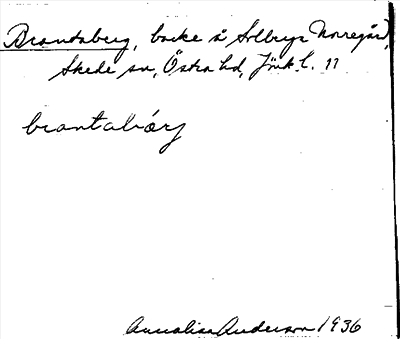 Brantaberg, backe å Solberga Norregård,
Skede sn, Östra hd, Jönk. l. 11
brantabærj
Annalisa Anderson 1936